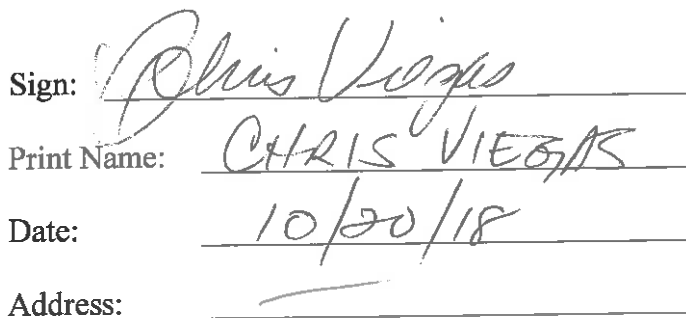 Sign: Chris Viegas
Print Name: CHRIS VIEGAS
Date: 10/20/18
Address: —